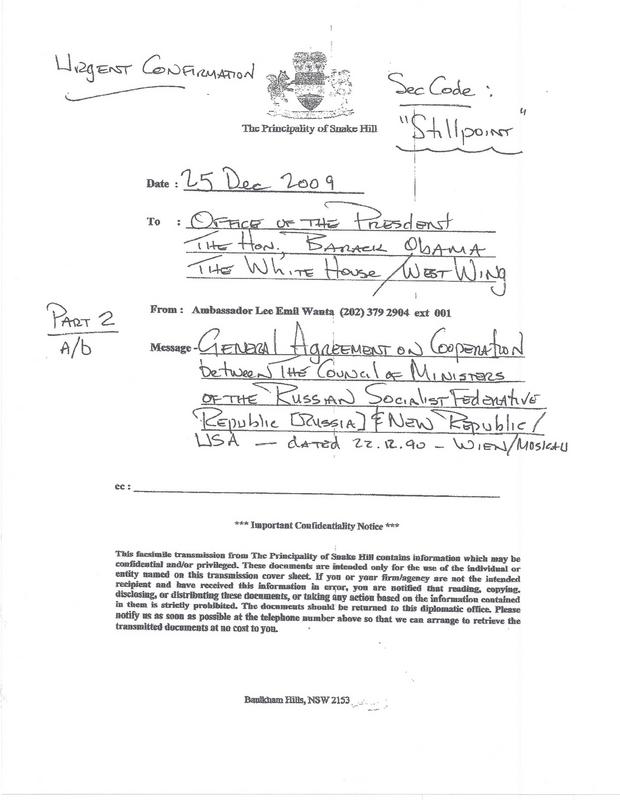 Urgent Confirmation
Sec Code :
"Stillpoint"
The Principality of Snake Hill
Date : 25 Dec 2009
To : Office of the Presdent
The Hon., Barack Obama
The White House / West Wing
From : Ambassador Lee Emil Wanta (202) 379 2904 ext 001
Part 2
A/b
Message - General Agreement on Cooperation
between The Council of Ministers
of the Russian Socialist Federative
Republic [Russia] & New Republic/
USA — dated 22.12.90 - Wien/Moskau
cc :
*** Important Confidentiality Notice ***
This facsimile transmission from The Principality of Snake Hill contains information which may be
confidential and/or privileged. These documents are intended only for the use of the individual or
entity named on this transmission cover sheet. If you or your firm/agency are not the intended
recipient and have received this information in error, you are notified that reading, copying,
disclosing, or distributing these documents, or taking any action based on the information contained
in them is strictly prohibited. The documents should be returned to this diplomatic office. Please
notify us as soon as possible at the telephone number above so that we can arrange to retrieve the
transmitted documents at no cost to you.
Baulkham Hills, NSW 2153